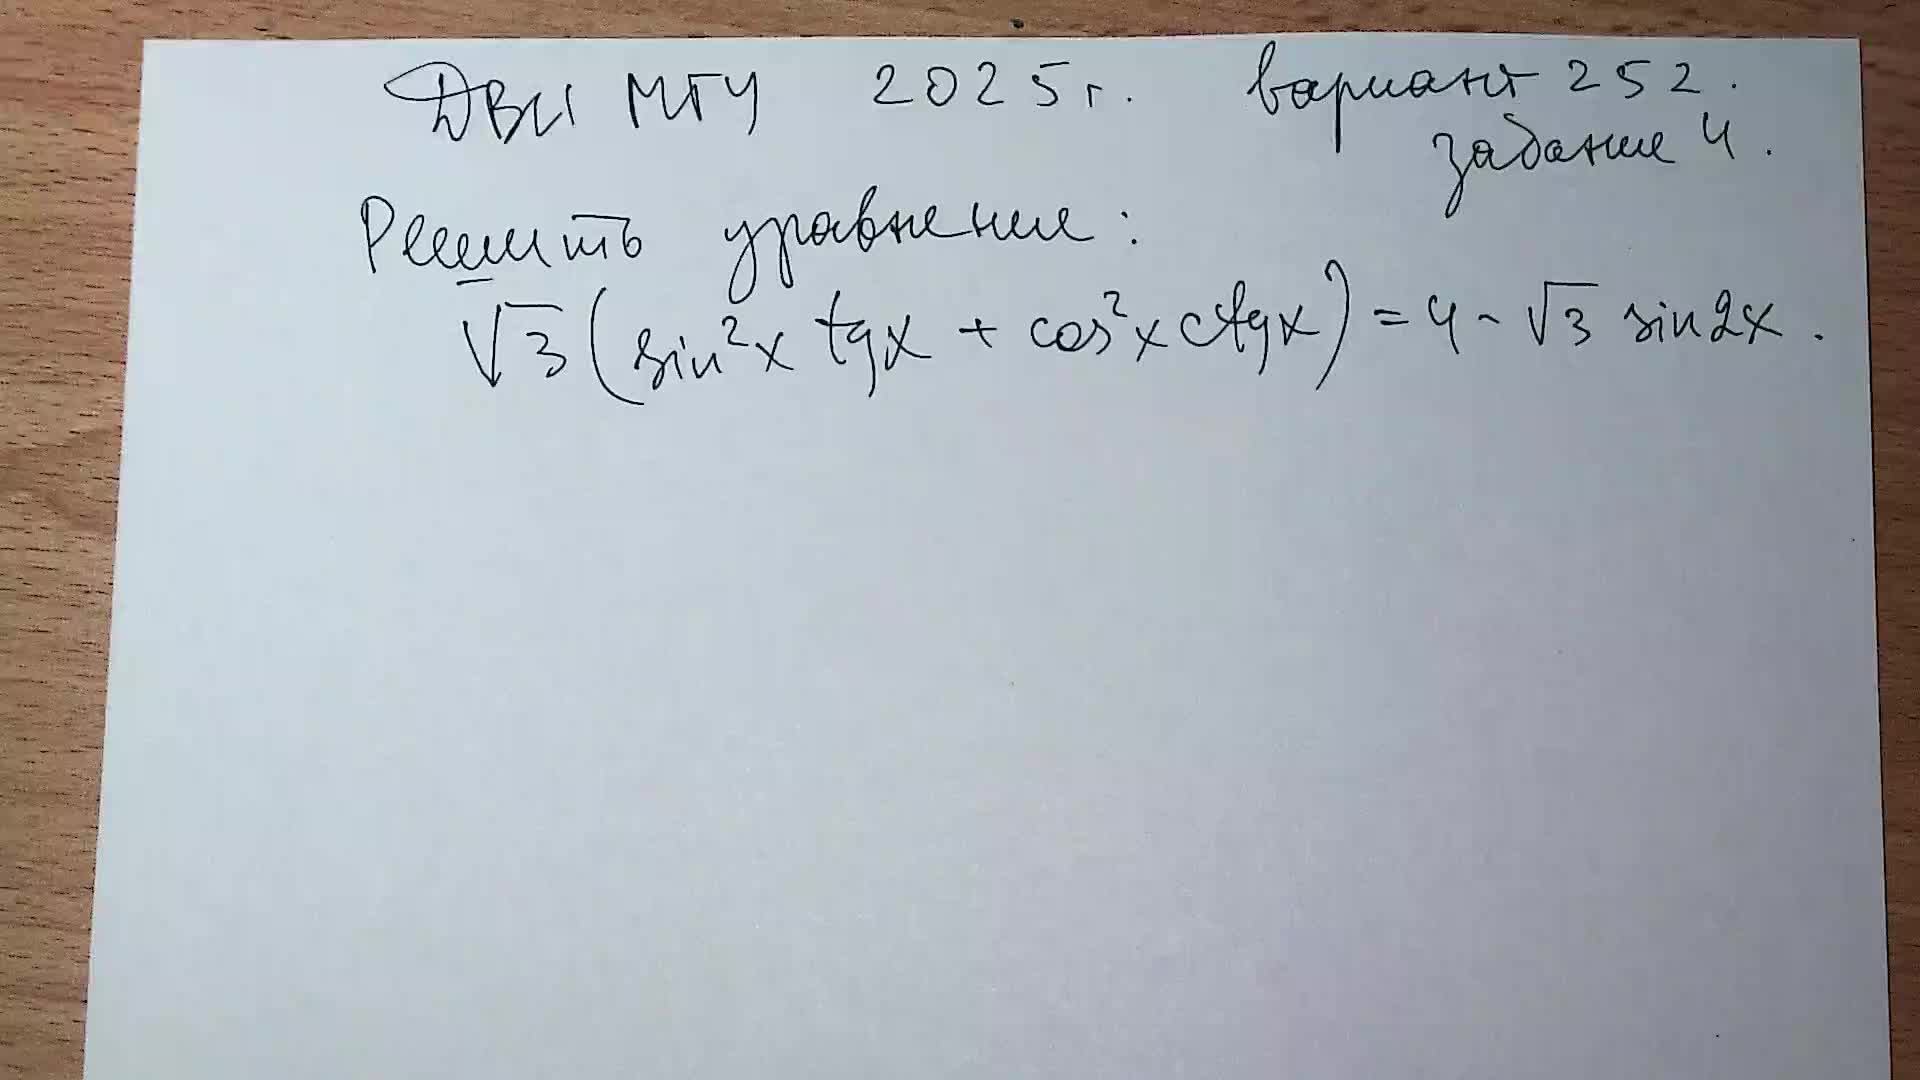 ДВИ МГУ 2025г. вариант 252.
задание 4.
Решить уравнение:
√3 (sin²x tgx + cos²x ctgx) = 4 - √3 sin2x.